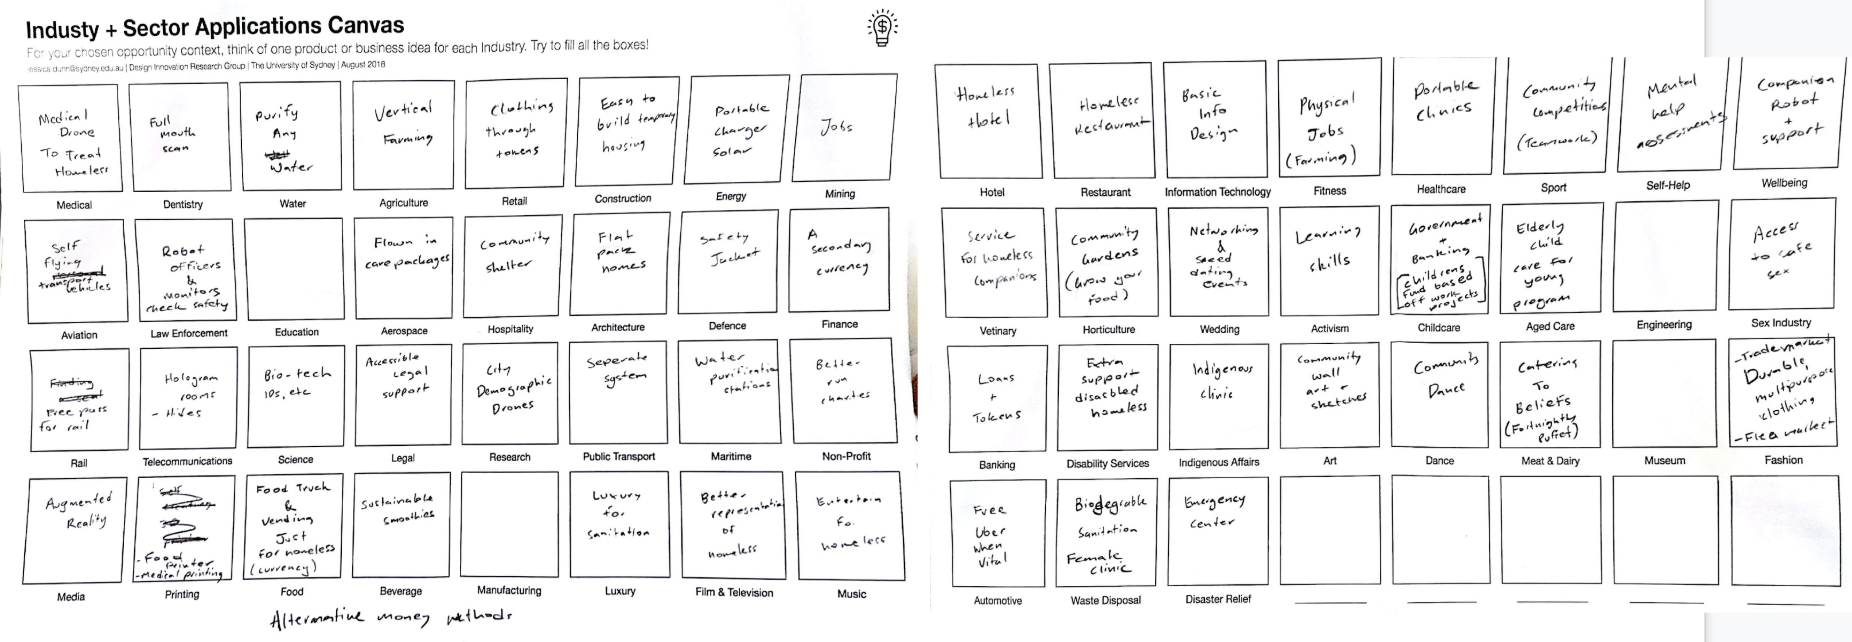 Industy + Sector Applications Canvas
For your chosen opportunity context, think of one product or business idea for each Industry. Try to fill all the boxes!
jessica.dunn@sydney.edu.au | Design Innovation Research Group | The University of Sydney | August 2018
Medical
Drone
To Treat
Homeless
Medical
Full
mouth
scan
Dentistry
Purify
Any
Water
Water
Vertical
Farming
Agriculture
Clothing
through
tokens
Retail
Easy to
build temporary
housing
Construction
Portable
charger
Solar
Energy
Jobs
Mining
Self
flying
transport
vehicles
Aviation
Robot
officers
&
monitors
check safety
Law Enforcement
Education
Flown in
care packages
Aerospace
Community
shelter
Hospitality
Flat
pack
homes
Architecture
Safety
Jacket
Defence
A
secondary
currency
Finance
Free pass
for rail
Rail
Hologram
rooms
- Hives
Telecommunications
Bio-tech
IDs, etc
Science
Accessible
Legal
support
Legal
City
Demographic
Drones
Research
Seperate
system
Public Transport
Water
purification
stations
Maritime
Better
run
charties
Non-Profit
Augmented
Reality
Media
- Food
Printer
- Medical printing
Printing
Food Truck
&
Vending
Just
for homeless
(currency)
Food
Sustainable
smoothies
Beverage
Manufacturing
Luxury
for
sanitation
Luxury
Better
representation
of
homeless
Film & Television
Entertain
for
homeless
Music
Alternative money methods
Homeless
Hotel
Hotel
Homeless
Restaurant
Restaurant
Basic
Info
Design
Information Technology
Physical
Jobs
(Farming)
Fitness
Portable
Clinics
Healthcare
Community
Competitions
(Teamwork)
Sport
Mental
help
assessments
Self-Help
Companion
Robot
+
support
Wellbeing
Service
for homeless
companions
Vetinary
Community
Gardens
(Grow your
food)
Horticulture
Networking
&
speed
dating
events
Wedding
Learning
skills
Activism
Government
+
Banking
[Childrens
Fund based
off work
projects]
Childcare
Elderly
child
care for
young
program
Aged Care
Engineering
Access
to safe
sex
Sex Industry
Loans
+
Tokens
Banking
Extra
support
disabled
homeless
Disability Services
Indigenous
clinic
Indigenous Affairs
Community
wall
art +
sketches
Art
Community
Dance
Dance
Catering
To
Beliefs
(Fortnightly
Buffet)
Meat & Dairy
Museum
- Trade market
Durable,
multipurpose
clothing
- Flea market
Fashion
Free
Uber
when
Vital
Automotive
Biodegrable
Sanitation
Female
Clinic
Waste Disposal
Emergency
center
Disaster Relief